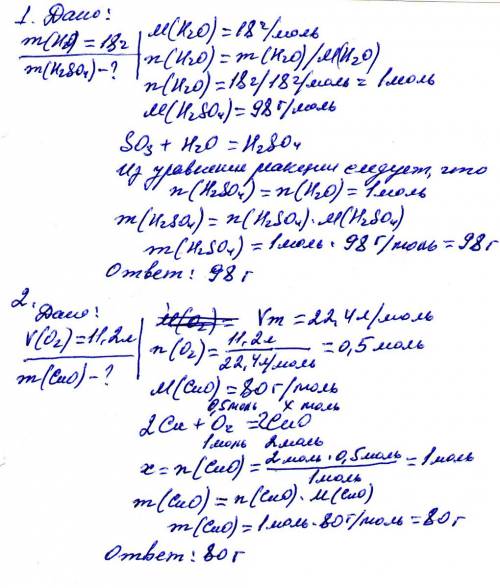 1. Дано:
m(H2O) = 18г
m(H2SO4) - ?
M(H2O) = 18г/моль
n(H2O) = m(H2O)/M(H2O)
n(H2O) = 18г/18г/моль = 1моль
M(H2SO4) = 98г/моль
SO3 + H2O = H2SO4
Из уравнения реакции следует, что
n(H2SO4) = n(H2O) = 1моль
m(H2SO4) = n(H2SO4) · M(H2SO4)
m(H2SO4) = 1моль · 98г/моль = 98г
Ответ: 98г
2. Дано:
V(O2) = 11,2л
m(CuO) - ?
M(O2) = Vm = 22,4л/моль
n(O2) = 11,2л / 22,4л/моль = 0,5моль
M(CuO) = 80г/моль
0,5моль x моль
2Cu + O2 = 2CuO
1моль 2моль
x = n(CuO) = 2моль · 0,5моль / 1моль = 1моль
m(CuO) = n(CuO) · M(CuO)
m(CuO) = 1моль · 80г/моль = 80г
Ответ: 80г